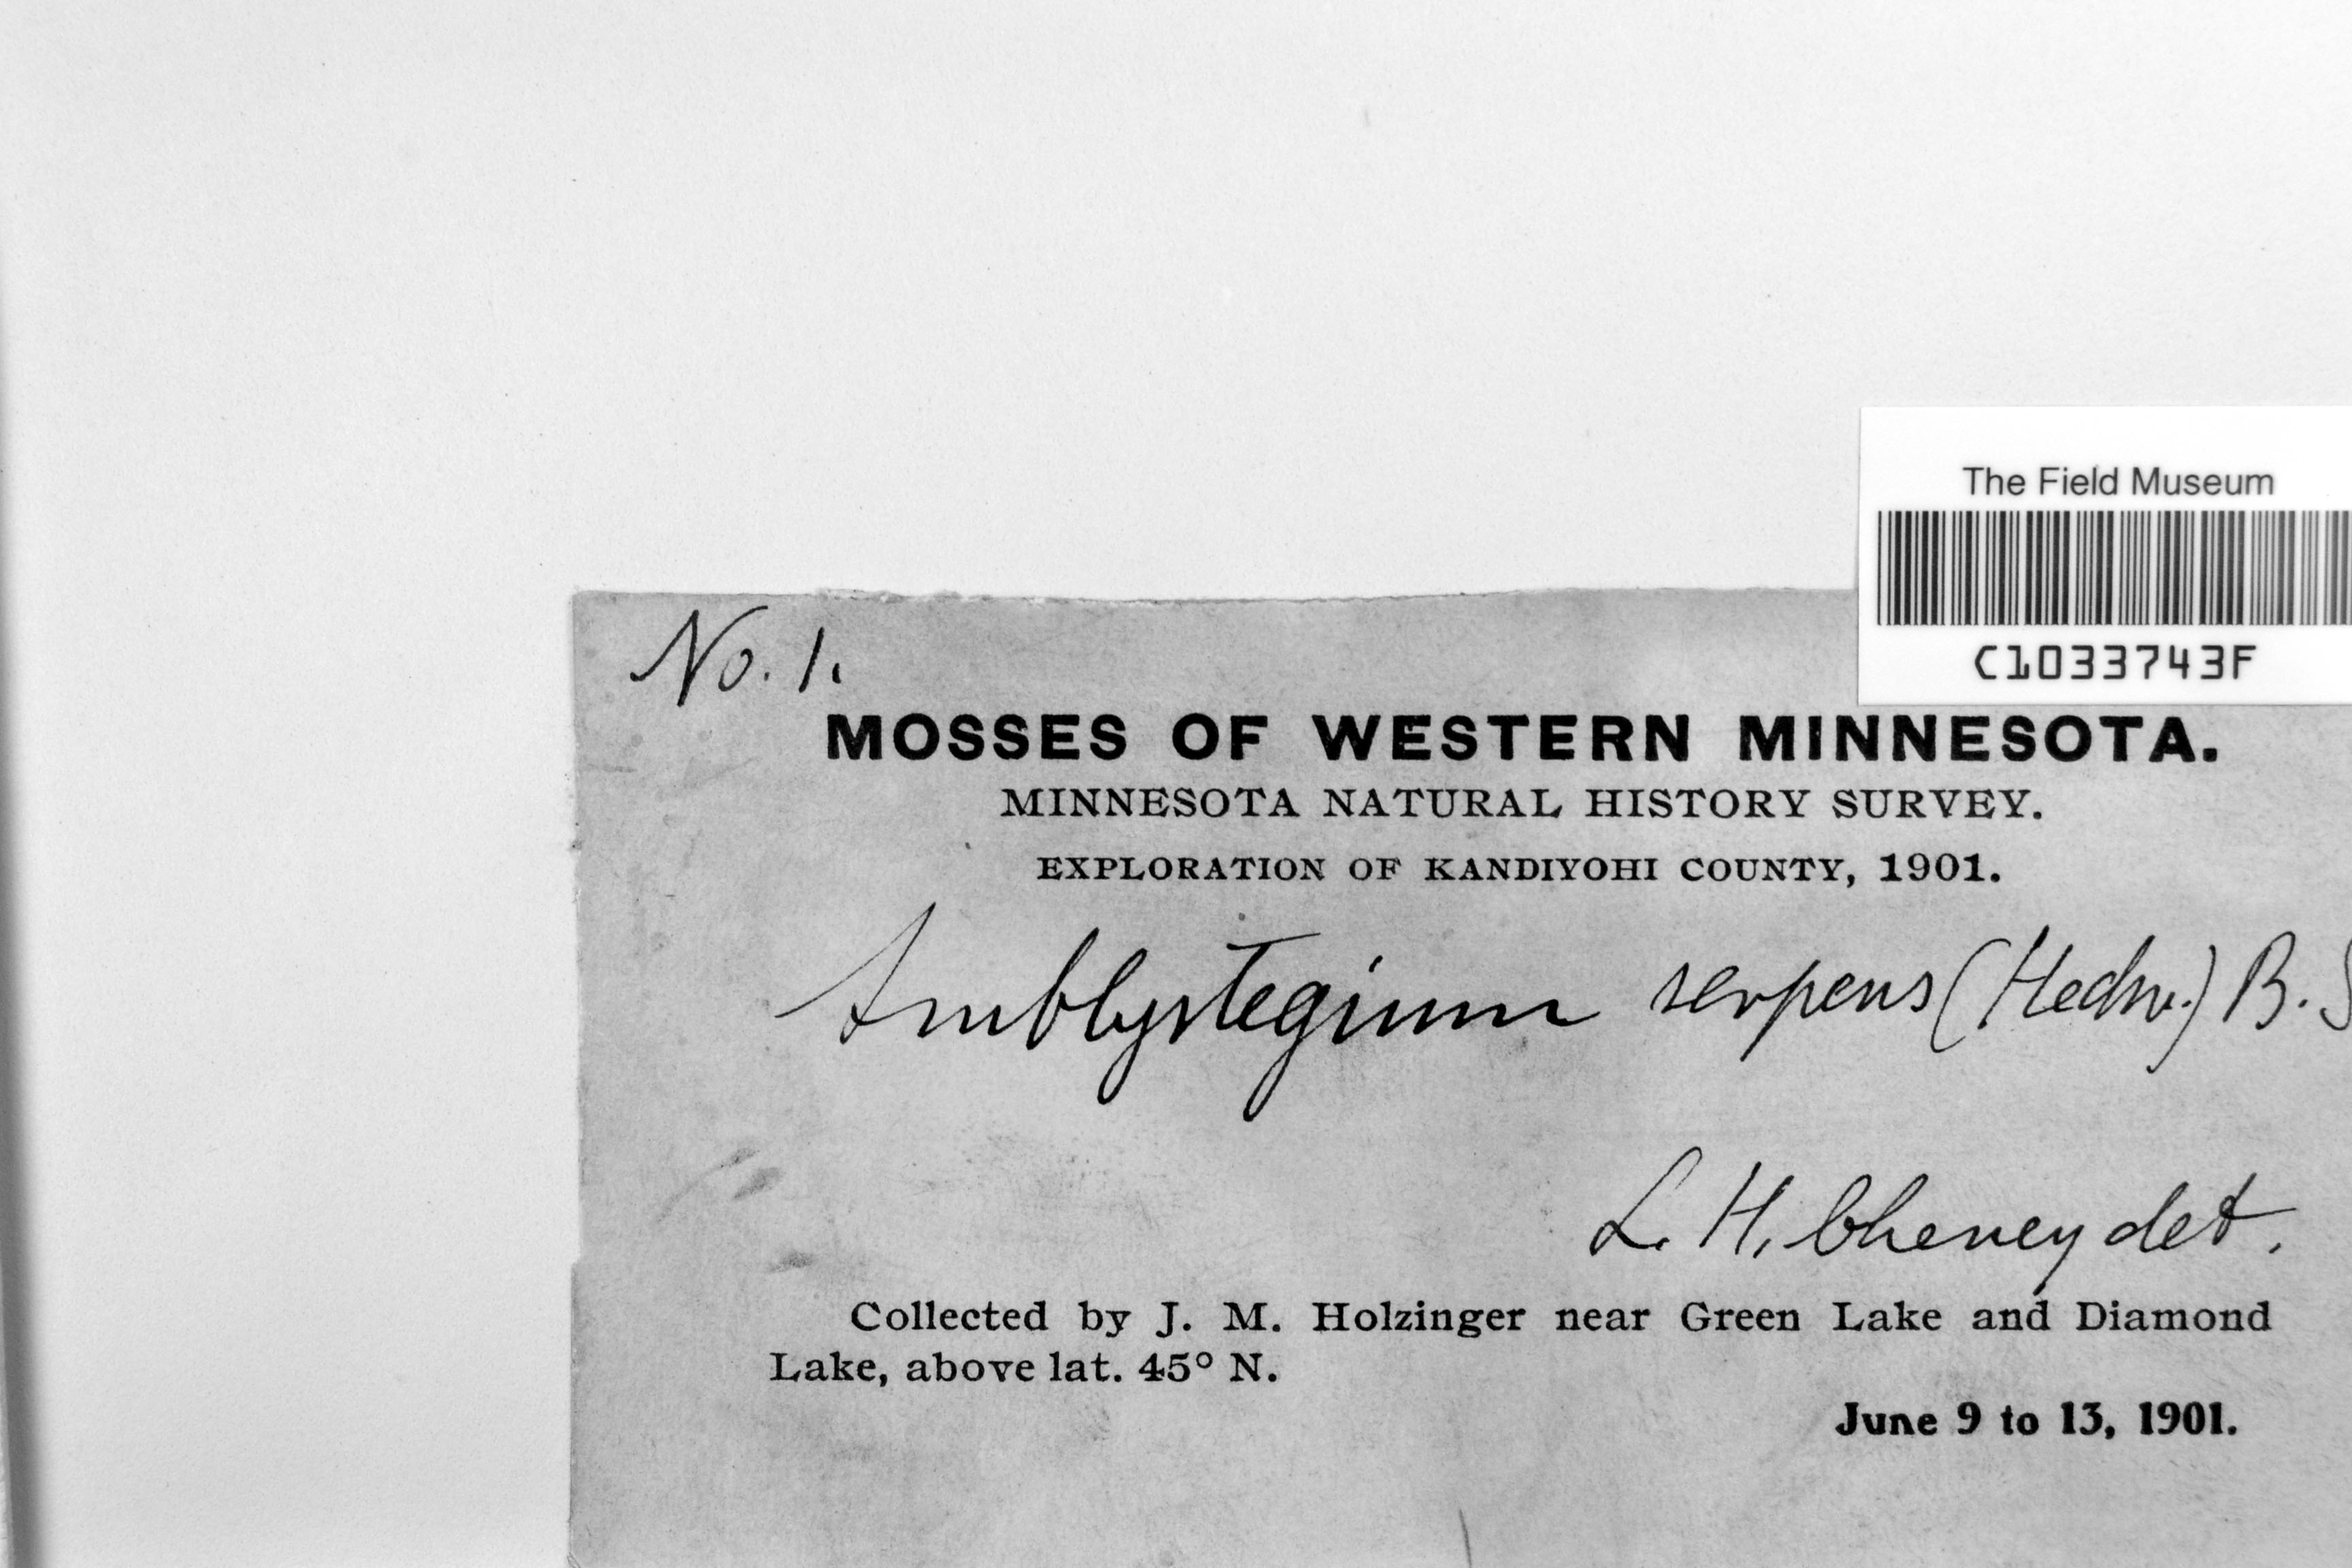 The Field Museum
C1033743F
No. 1.
MOSSES OF WESTERN MINNESOTA.
MINNESOTA NATURAL HISTORY SURVEY.
EXPLORATION OF KANDIYOHI COUNTY, 1901.
Amblystegium serpens (Hedw.) B. S
L. H. Cheney det.
Collected by J. M. Holzinger near Green Lake and Diamond
Lake, above lat. 45° N.
June 9 to 13, 1901.